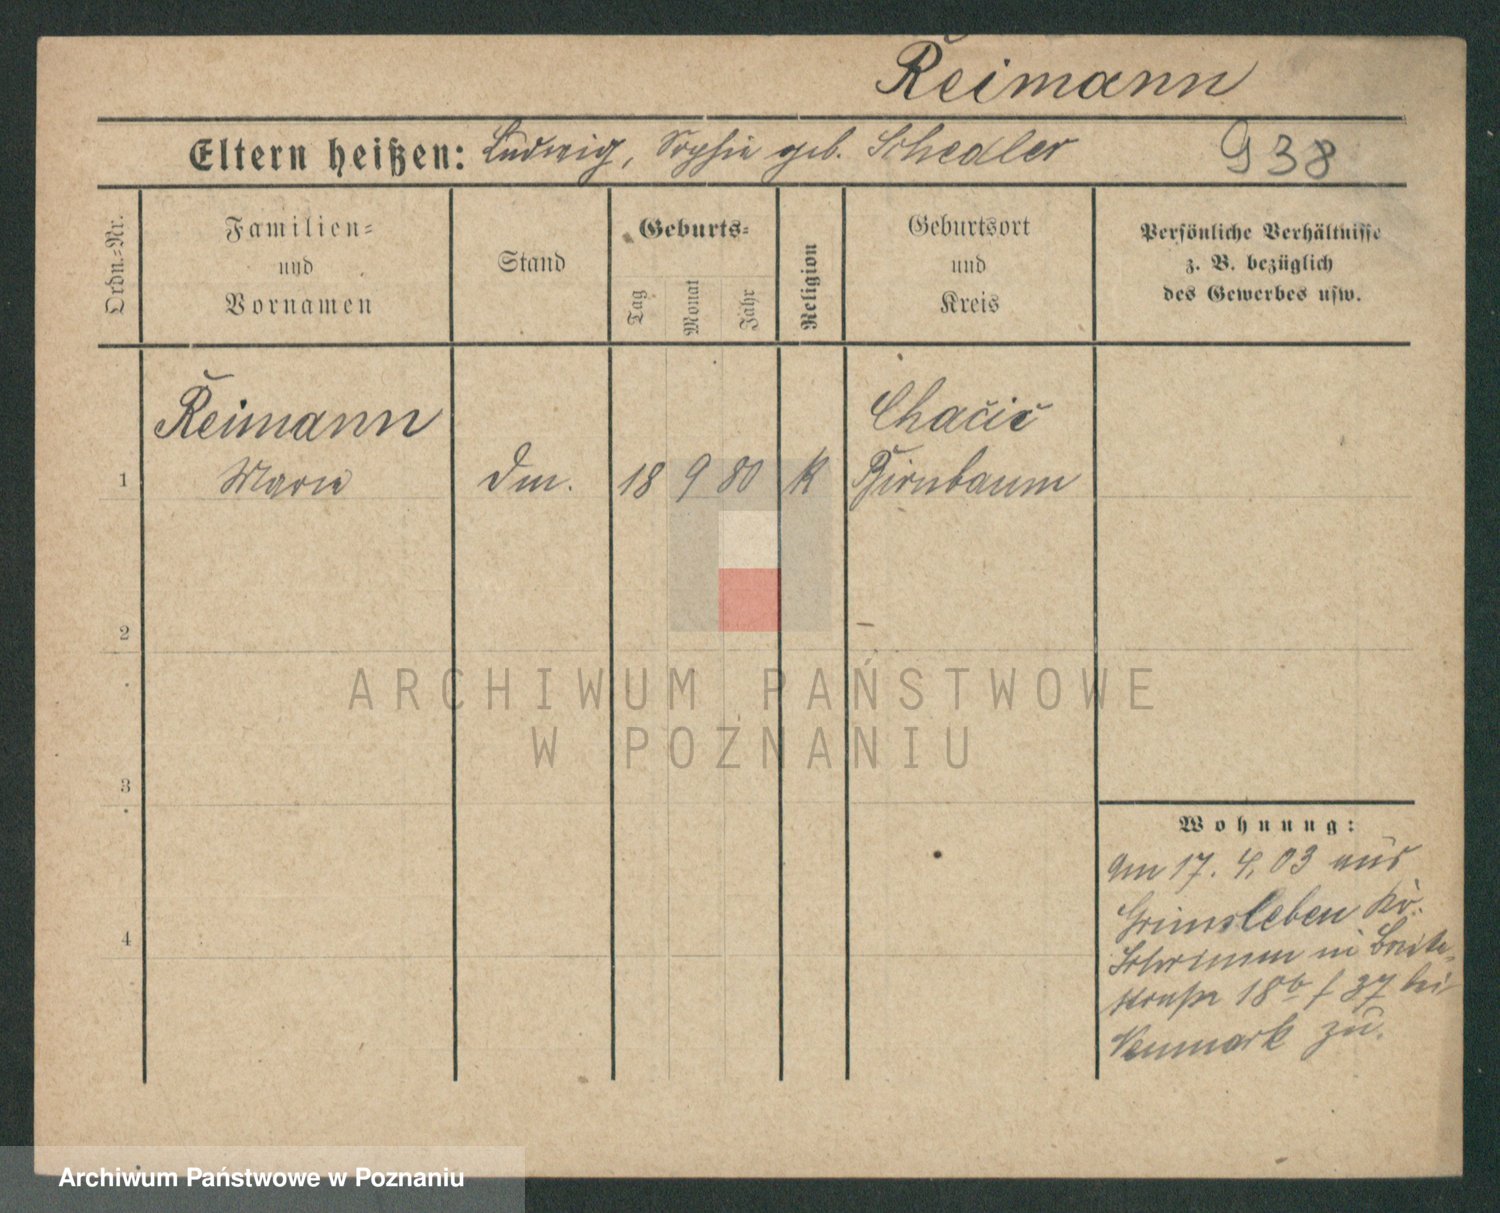 Reimann
Eltern heißen: Ludwig, Sophie geb. Schedler
938
Ordn.-Nr.
Familien-
und
Vornamen
Stand
Geburts-
Tag
Monat
Jahr
Religion
Geburtsort
und
Kreis
Persönliche Verhältnisse
z. B. bezüglich
des Gewerbes usw.
Reimann
Chačič
1 Marie 18 9 80 K Birnbaum
2
3
4
Wohnung:
Am 17. 4. 03 aus
Grimsleben Kr.
Schrimm in Breite-
straße 18b f 37 bei
Neumark zu.
ARCHIWUM PAŃSTWOWE
W POZNANIU
Archiwum Państwowe w Poznaniu